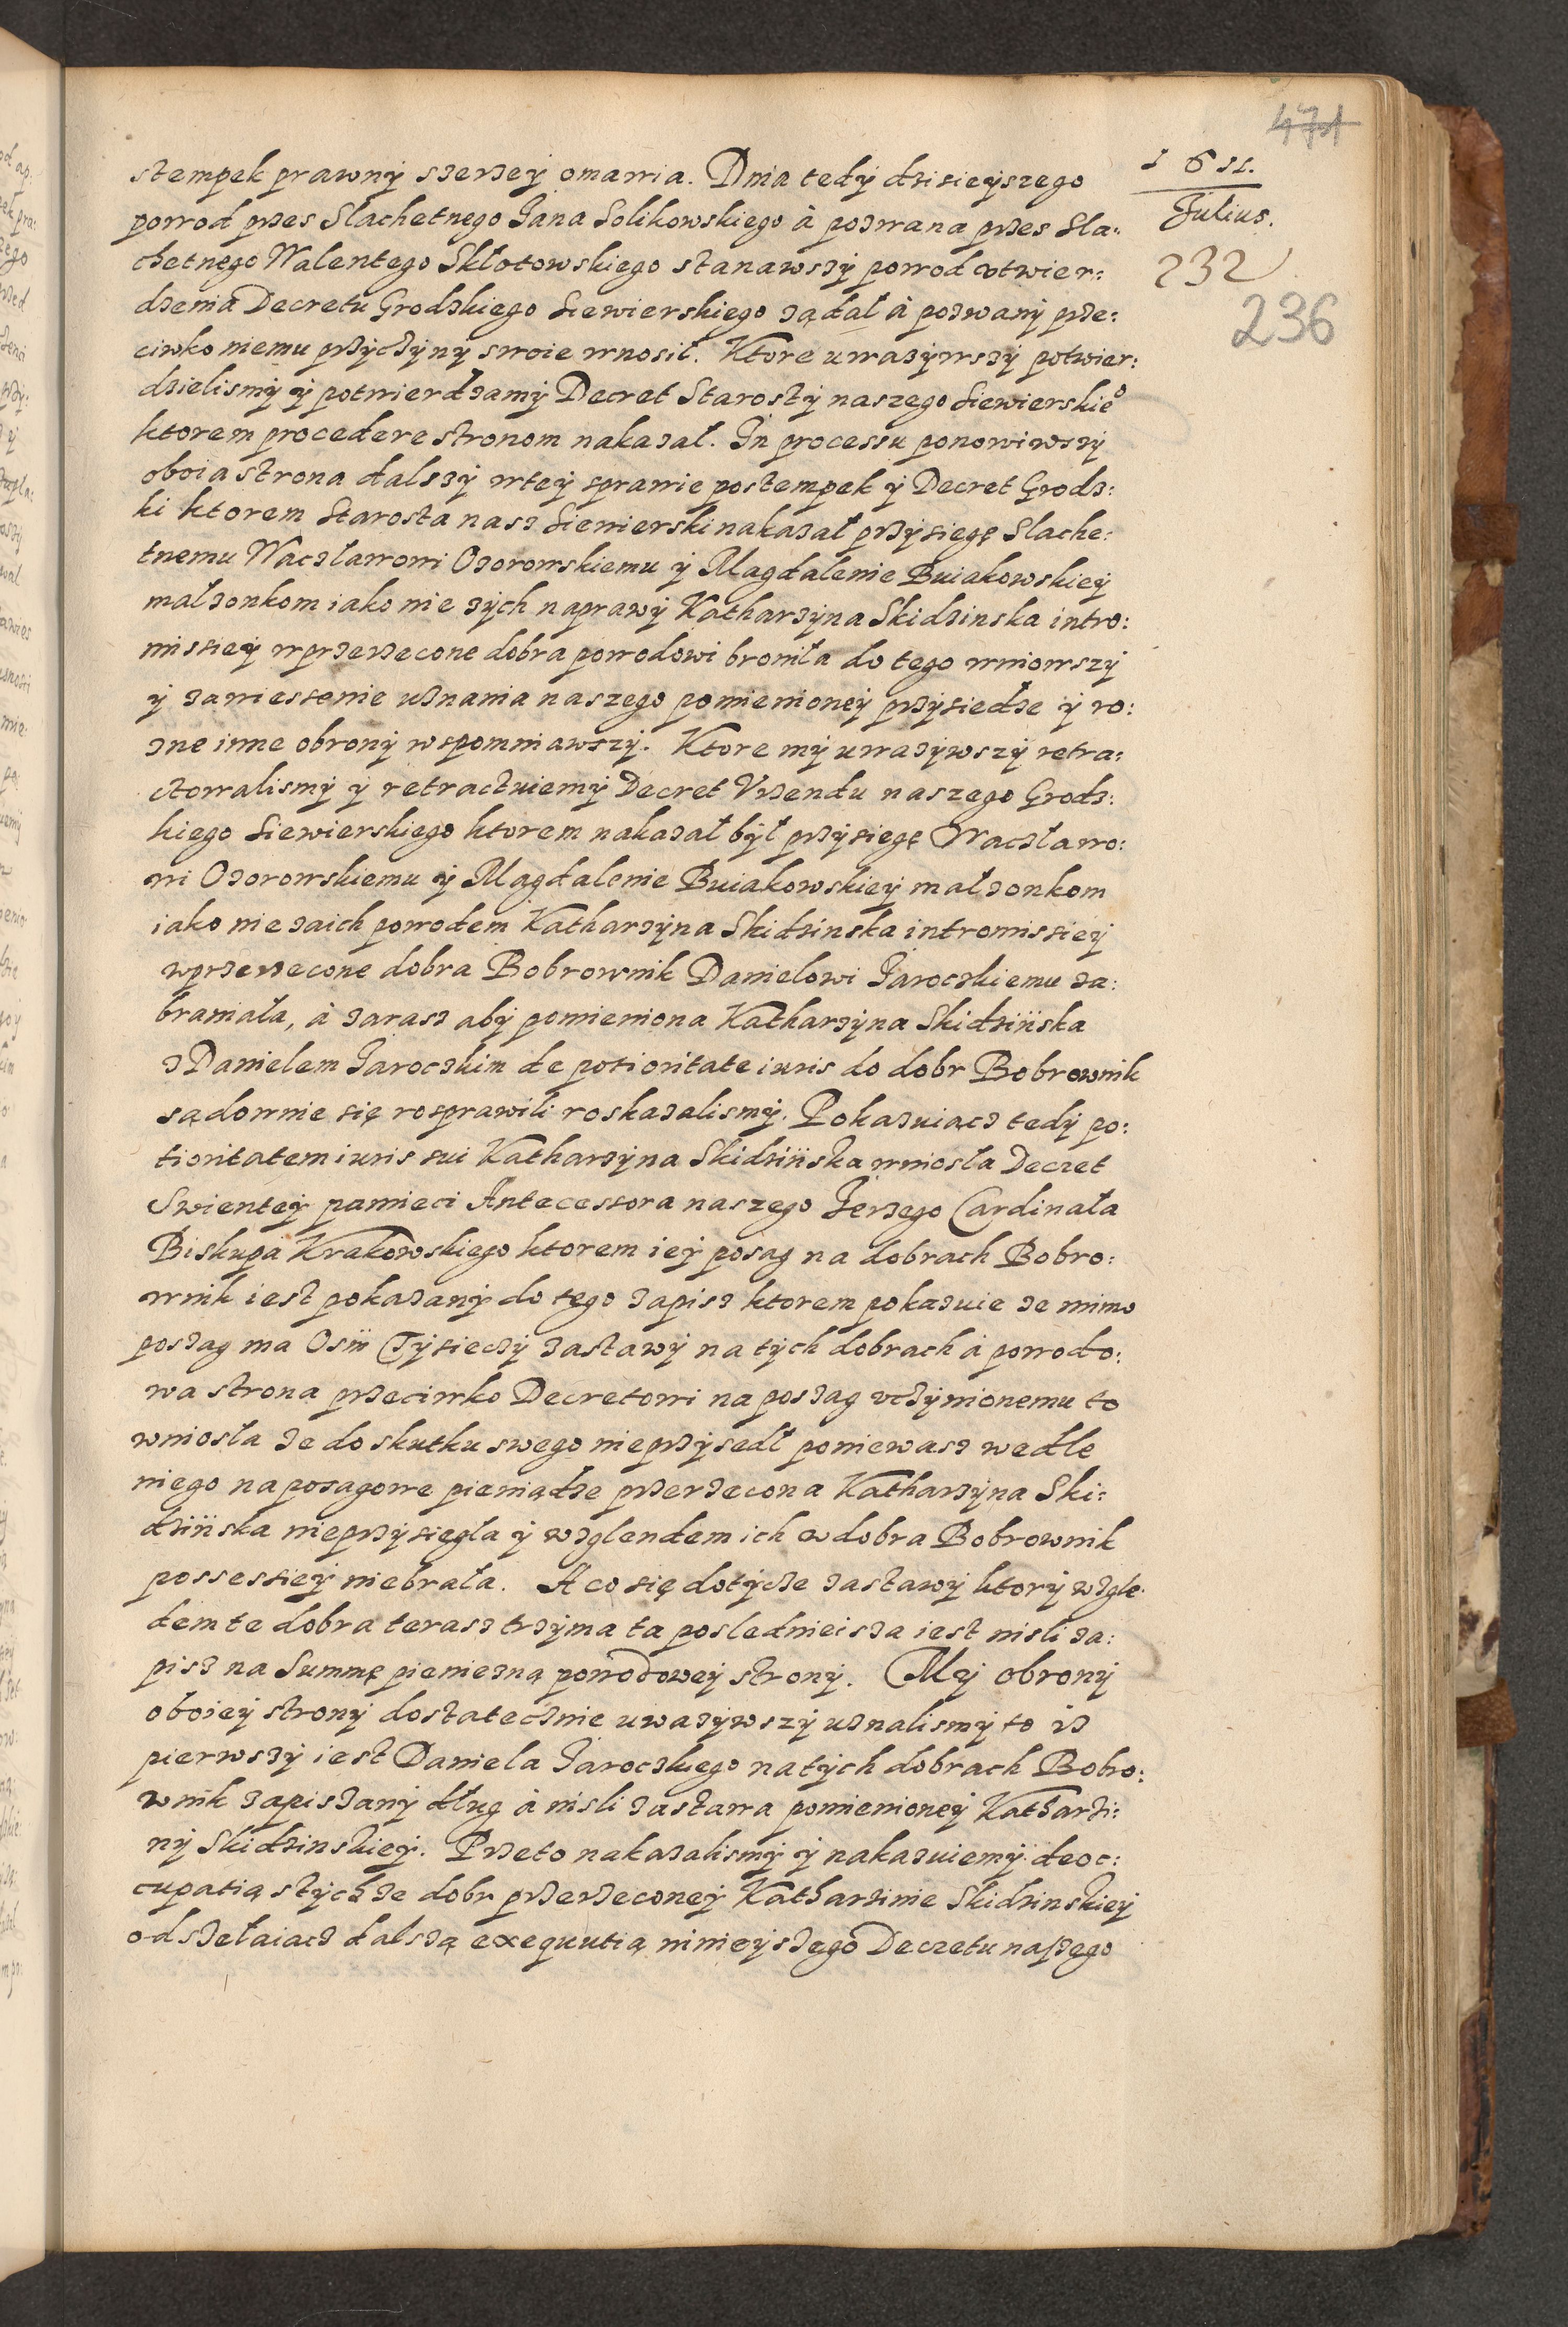 471
1611.
Julius.
232
236
stempek prawny szerzey omawia. Dnia tedy dzisieyszego
powod przes Slachetnego Jana Solikowskiego à pozwana przes Sla:
chetnego Walentego Skłotowskiego stanawszy powod vtwier:
dzenia Decretu Grodzkiego Siewierskiego ządał à pozwany prze:
ciwko niemu przyczyny swoie wnosił. Ktore uwazywszy potwier:
dzielismy y potwierdzamy Decret Starosty naszego Siewierskieº
ktorem procedere stronom nakazał. In processu ponowiwszy
oboia strona dalszy wtey sprawie postempek y Decret Grodz:
ki ktorem Starosta nasz Siewierski nakazał przysięgę Slache:
tnemu Wacsławowi Ozorowskiemu y Magdalenie Buiakowskiey
małzonkom iako nie zych naprawy Katharzyna Skidzinska intro:
missiey wprzerzecone dobra powodowi broniła do tego wniowszy
y zawiessenie uznania naszego pomienioney przysiedze y ro:
zne inne obrony wspomniawszy. Ktore my uwazywszy retra:
ctowalismy y retractuiemy Decret Vrzendu naszego Grodz:
kiego Siewierskiego ktorem nakazał był przysięgę Wacsławo:
wi Ozorowskiemu y Magdalenie Buiakowskiey małzonkom
iako nie zaich powodem Katharzyna Skidzinska intromissiey
wprzerzecone dobra Bobrownik Danielowi Jaroczkiemu za:
braniała, à zarasz aby pomieniona Katharzyna Skidzińska
z Danielem Jaroczkim de potioritate iuris do dobr Bobrownik
sądownie się rosprawili roskazalismy. Pokazuiacz tedy po:
tioritatem iuris sui Katharzyna Skidzińska wniosła Decret
Swientey pamieci Antecessora naszego Jerzego Cardinała
Biskupa Krakowskiego ktorem iey posag na dobrach Bobro:
wnik iest pokazany do tego zapisz ktorem pokazuie ze mimo
poszag ma Osm Tysieczy zastawy na tych dobrach à powodo:
wa strona przeciwko Decretowi na poszag vczynionemu to
wniosła ze do skutku swego nieprzysedł poniewasz wedle
niego na posagowe pieniądze przerzecona Katharzyna Ski:
dzińska nieprzysięgła y wzglendem ich w dobra Bobrownik
possessiey niebrała. A co się dotycze zastawy ktory wzgle
dem te dobra terasz trzyma ta posledniejsza iest nisli za:
pisz na Summę pieniezną powodowey strony. My obrony
oboiey strony dostatecznie uwazywszy uznalismy to iz
pierwszy iest Daniela Jaroczkiego na tych dobrach Bobro:
wnik zapiszany dług à nisli zastawa pomienioney Katharzi:
ny Skidzinskiey. Przeto nakazalismy y nakazuiemy deoc:
cupatią stychze dobr przerzeconey Katharzinie Skidzinskiey
odszełaiacz dalszą exequutią ninieyszego Decretu naszego